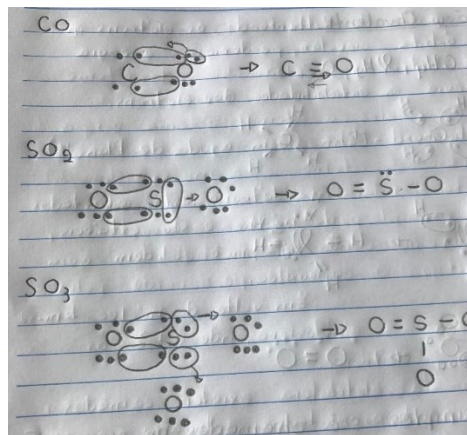 CO
C O → C ≡ O
SO₂
O S → O → O = S̈ - O
SO₃
O S → O → O = S - O
|
O O